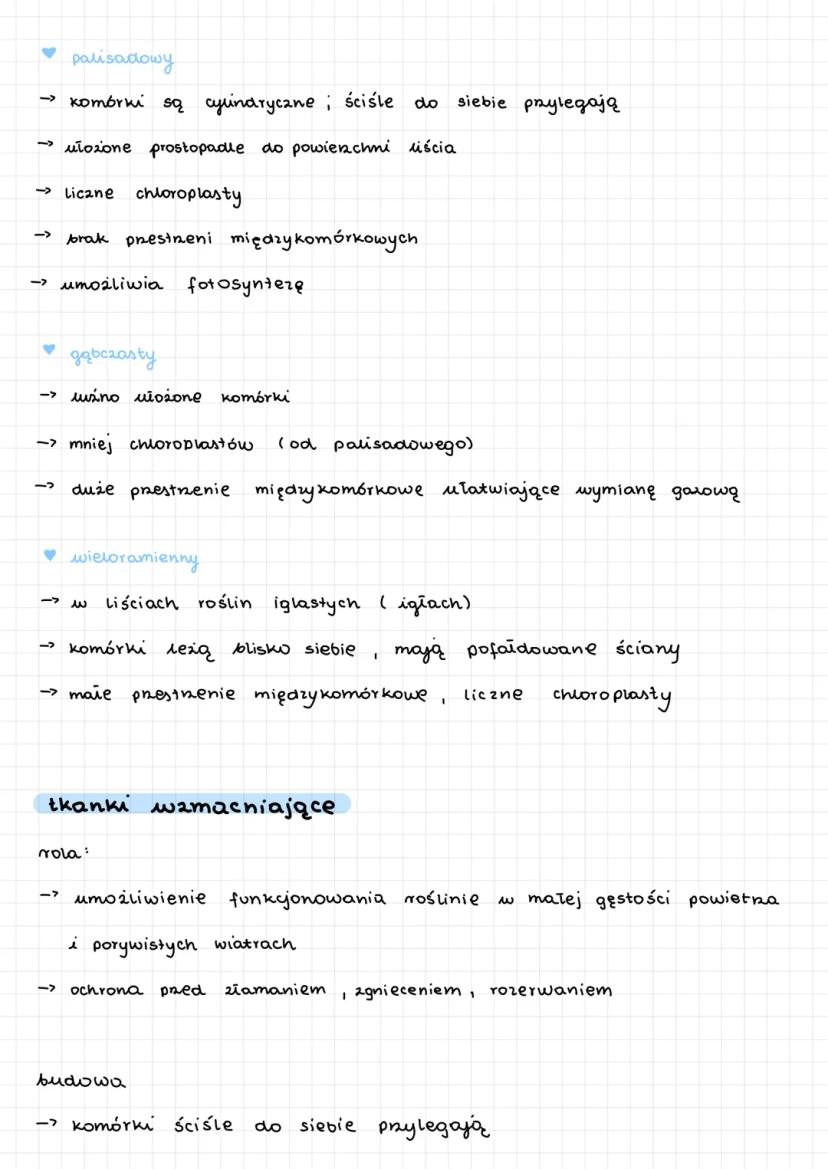 ♥ palisadowy
-> komórki są cylindryczne ; ściśle do siebie przylegają
-> ułożone prostopadle do powierzchni liścia
-> liczne chloroplasty
-> brak przestrzeni międzykomórkowych
-> umożliwia fotosyntezę
♥ gąbczasty
-> luźno ułożone komórki
-> mniej chloroplastów (od palisadowego)
-> duże przestrzenie międzykomórkowe ułatwiające wymianę gazową
♥ wieloramienny
-> w liściach roślin iglastych ( igłach)
-> komórki leżą blisko siebie , mają pofałdowane ściany
-> małe przestrzenie międzykomórkowe , liczne chloroplasty
tkanki wzmacniające
rola:
-> umożliwienie funkcjonowania roślinie w małej gęstości powietrza
i porywistych wiatrach
-> ochrona przed złamaniem , zgnieceniem , rozerwaniem
budowa
-> komórki ściśle do siebie przylegają